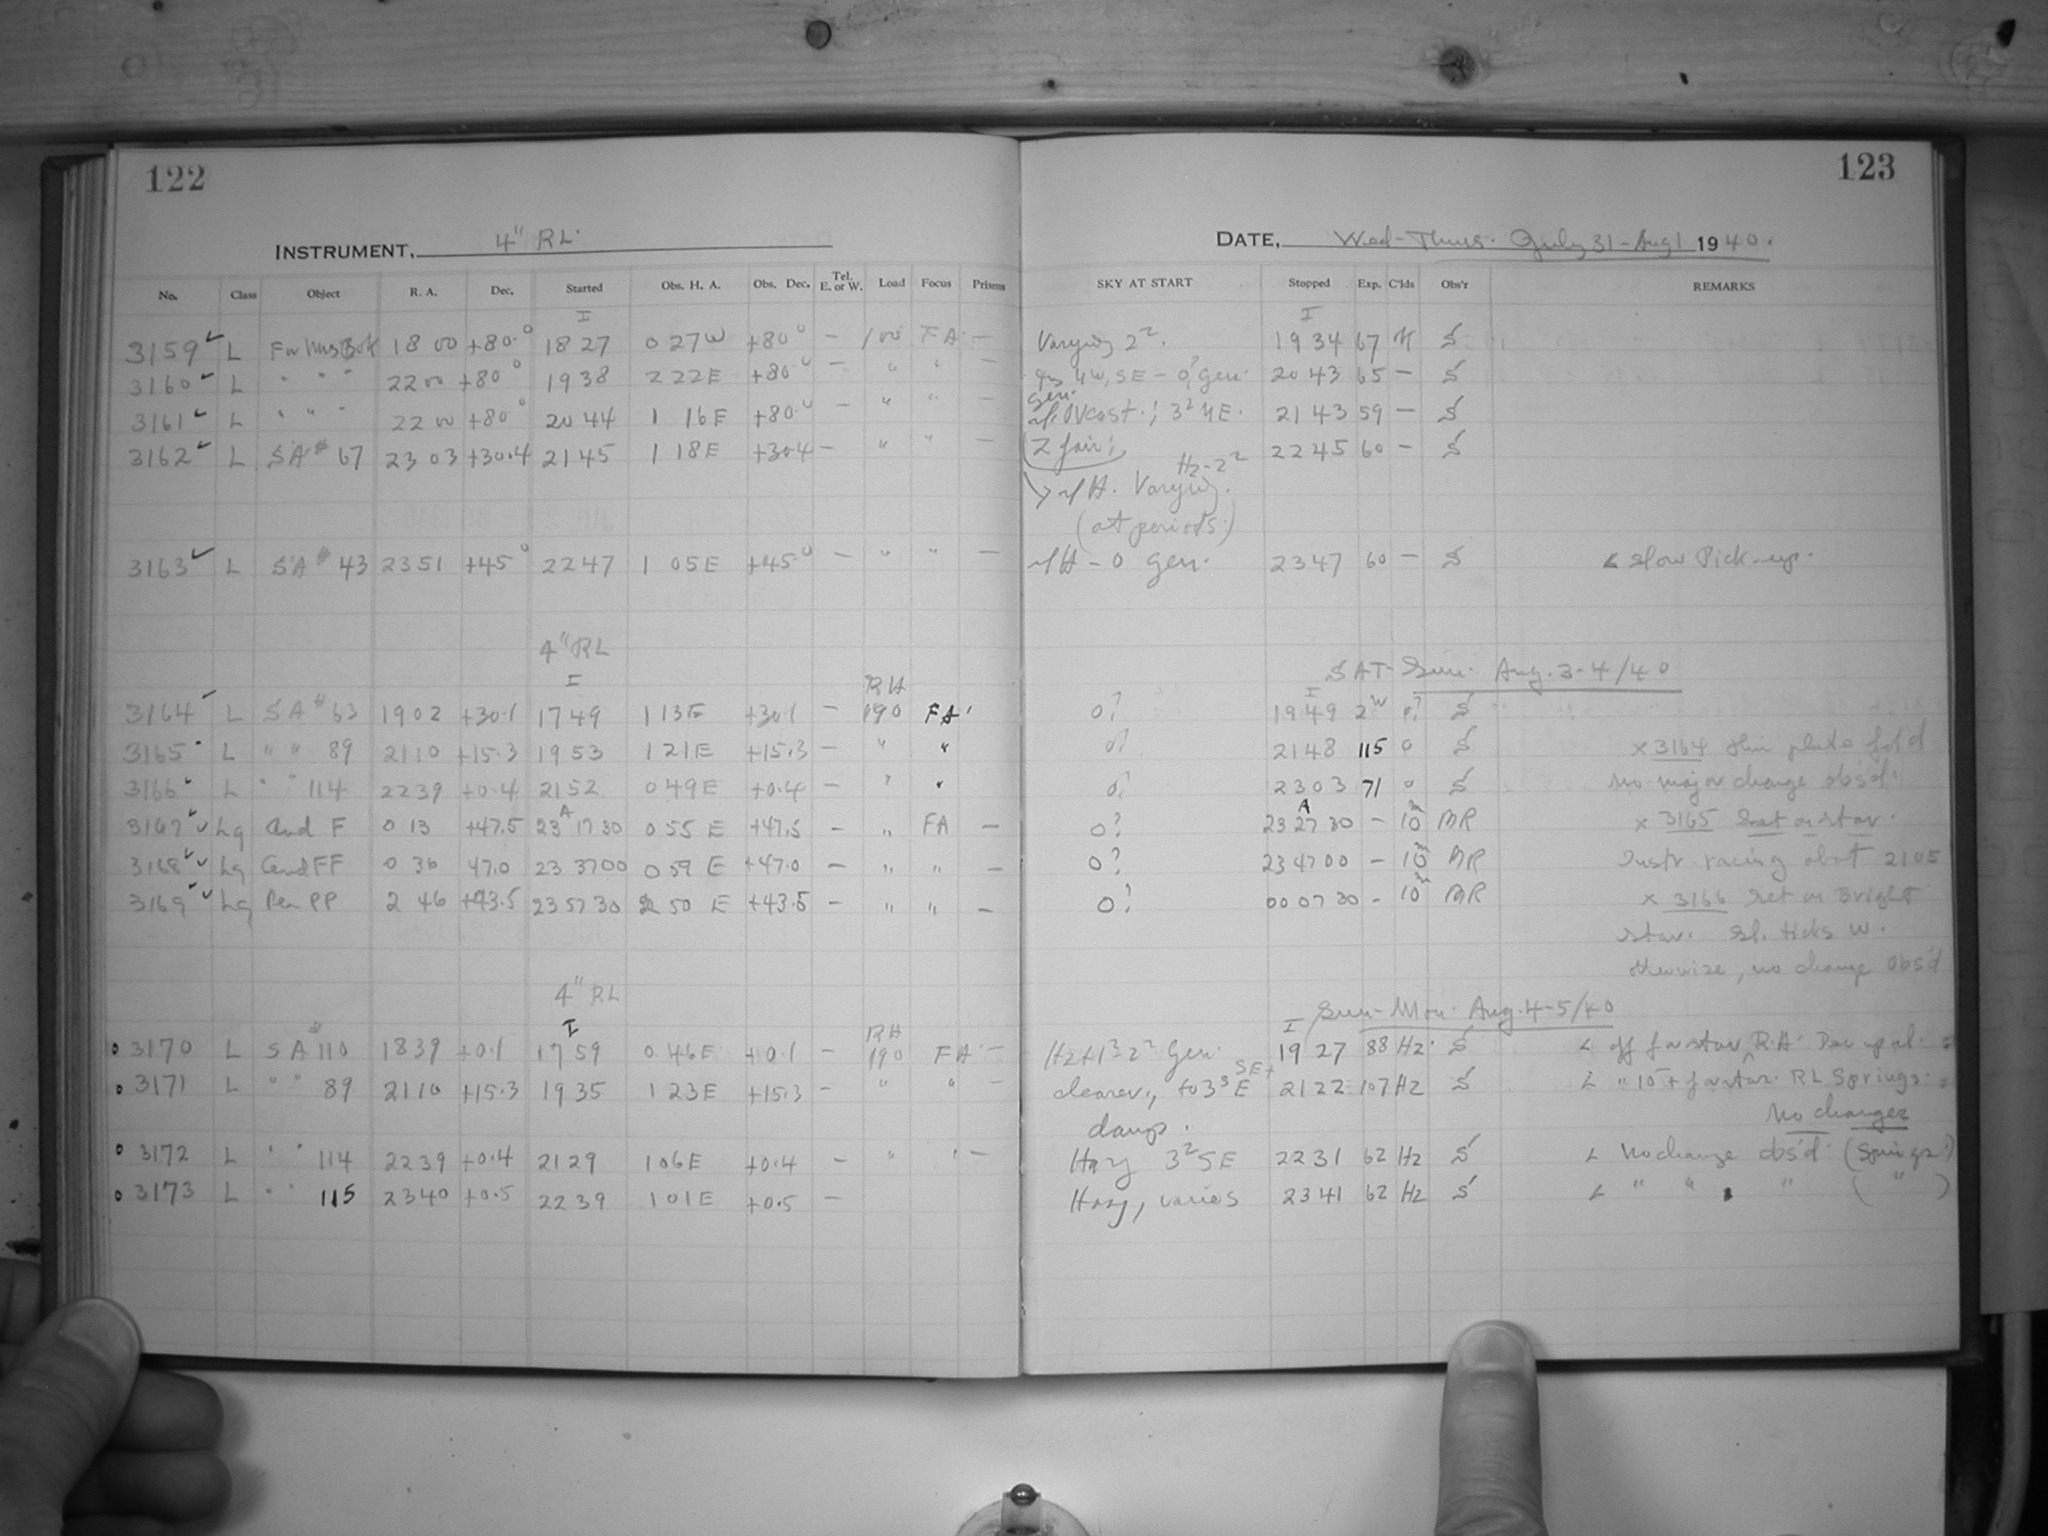 122
INSTRUMENT, 4" RL.
No. Class Object R. A. Dec. Started Obs. H. A. Obs. Dec. Tel. E. or W. Load Focus Prisms
I
3159 L 18 00 +80.° 18 27 0 27 W +80° — 100 FA. —
3160 L " " " 22 00 +80° 19 38 2 22 E +80° — " " —
3161 L " " " 22 00 +80° 20 44 1 16 E +80.° — " " —
3162 L SA # 67 23 03 +30.4 21 45 1 18 E +30.4 — " " —
3163 L SA # 43 23 51 +45° 22 47 1 05 E +45° — " " —
4" RL
I RH
3164 L SA # 63 19 02 +30.1 17 49 1 13 E +30.1 — 190 FA.
3165 L " " 89 21 10 +15.3 19 53 1 21 E +15.3 — " "
3166 L " " 114 22 39 +0.4 21 52 0 49 E +0.4 — " "
A
3167 Lg And F 0 13 +47.5 23 17 30 0 55 E +47.5 — " FA —
3168 Lg And FF 0 36 47.0 23 37 00 0 59 E +47.0 — " " —
3169 Lg Per PP 2 46 +43.5 23 57 30 2 50 E +43.5 — " " —
4" RL
I RH
3170 L SA # 110 18 39 +0.1 17 59 0 46 E +0.1 — 190 FA —
3171 L " " 89 21 10 +15.3 19 35 1 23 E +15.3 — " " —
3172 L " " 114 22 39 +0.4 21 29 1 06 E +0.4 — " " —
3173 L " " 115 23 40 +0.5 22 39 1 01 E +0.5 —
123
DATE, Wed-Thurs. July 31-Aug 1 1940.
SKY AT START Stopped Exp. C'lds Obs'r REMARKS
I
Varying 2². 19 34 67 S
SE - 0? Gen. 20 43 65 — S
gen.
Ovcast.; 3² NE. 21 43 59 — S
Z fair; 22 45 60 — S
Hz-2²
Varying.
(at periods.)
- 0 Gen. 23 47 60 — S < Slow Pick-up.
SAT-Sun. Aug. 3-4/40
I
0? 19 49 2ʰ 0? S
0? 21 48 115 0 S x 3164 thin plate
0? 23 03 71 0 S No major change obs'd.
A
0? 23 27 30 — 10ᵐ BR x 3165 Set on star.
0? 23 47 00 — 10ᵐ BR Instr racing about 21 05
0? 00 07 30 - 10ᵐ BR x 3166 Set on Bright
star. Sl. ticks W.
otherwise, no change obs'd
Sun-Mon. Aug. 4-5/40
I
Gen. 19 27 88 Hz. S < off for star R.A.
clearer, to 3³ E SE+ 21 22 107 Hz S < " 15ˢ + for star. RL Springs.
damp. No changes
Hazy 3² SE 22 31 62 Hz S < No change obs'd. (Springs.)
Hazy, varies 23 41 62 Hz S < " " " ( " )